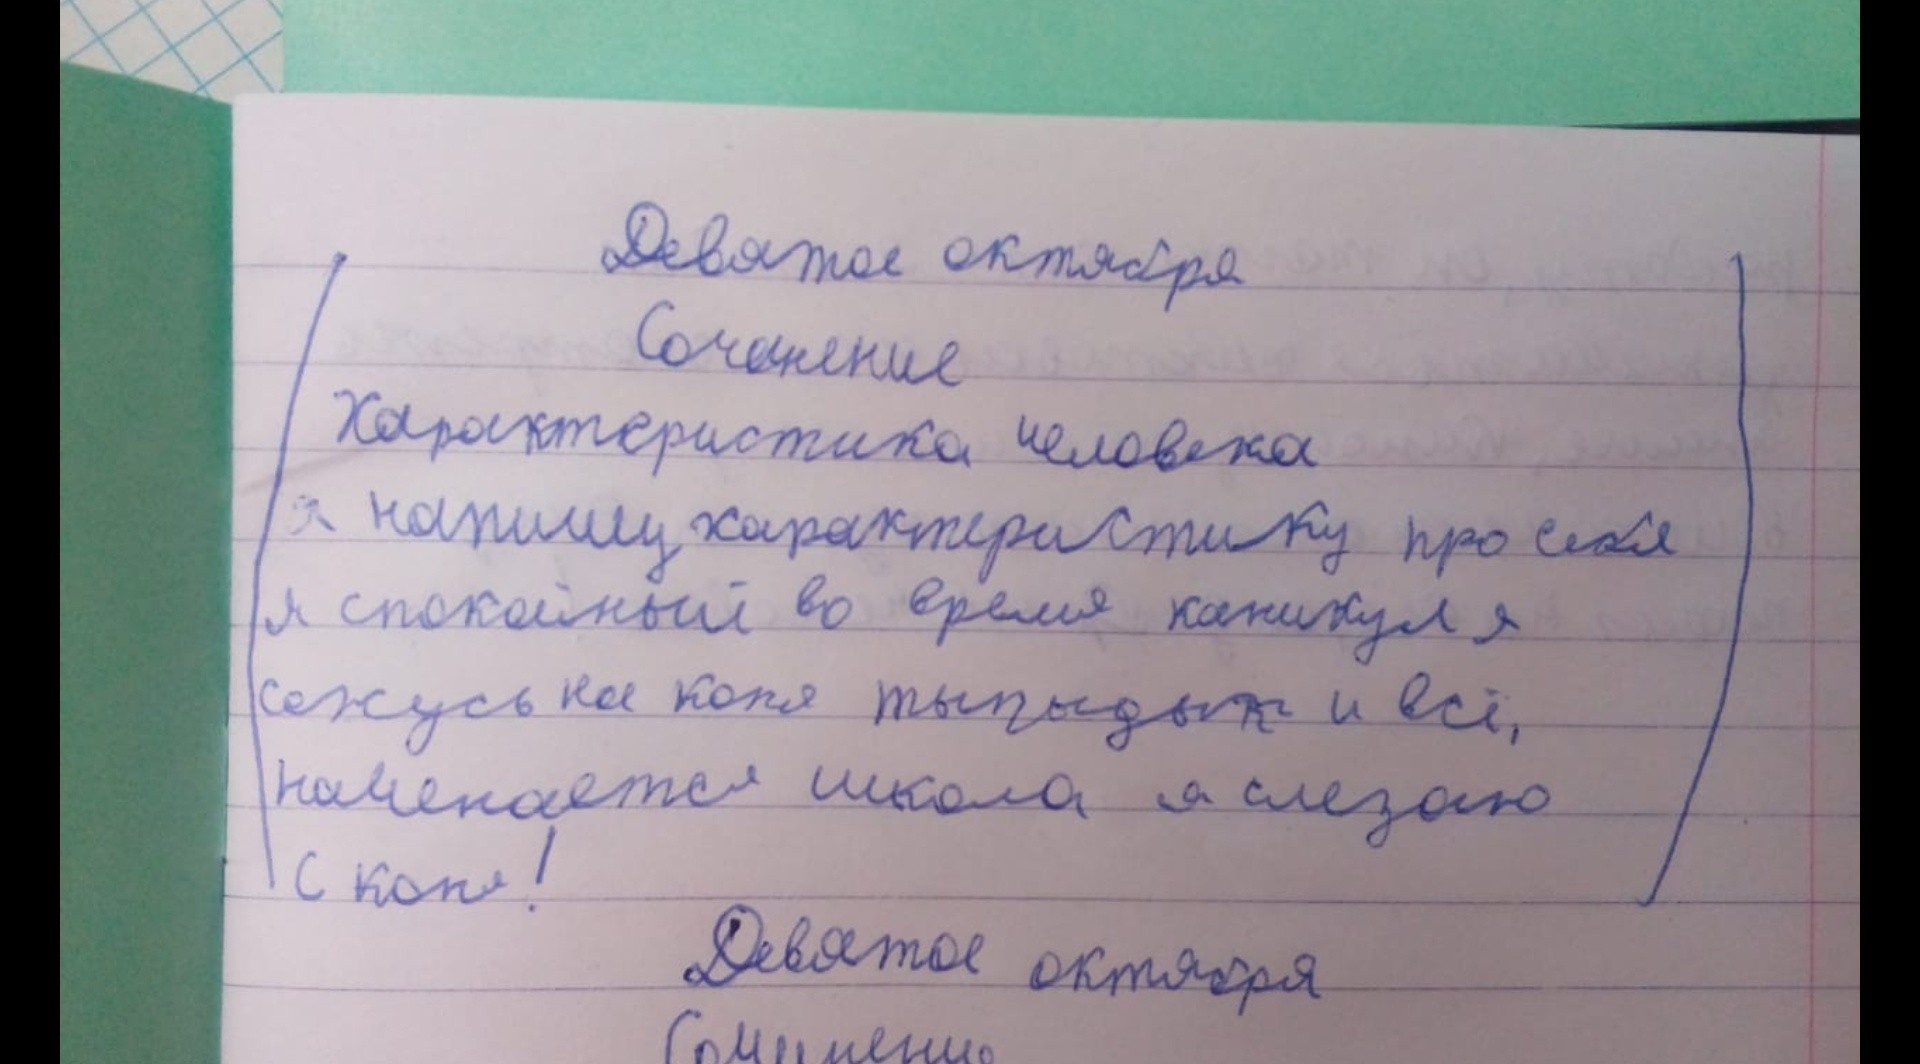 Девятое октября
Сочанение
Характеристика человека
я напишу характеристику про себя
я спокойный во время каникул я
сажусь на коня тыпыдык и всё,
наченается школа я слезаю
с коня!
Девятое октября
Сочинение